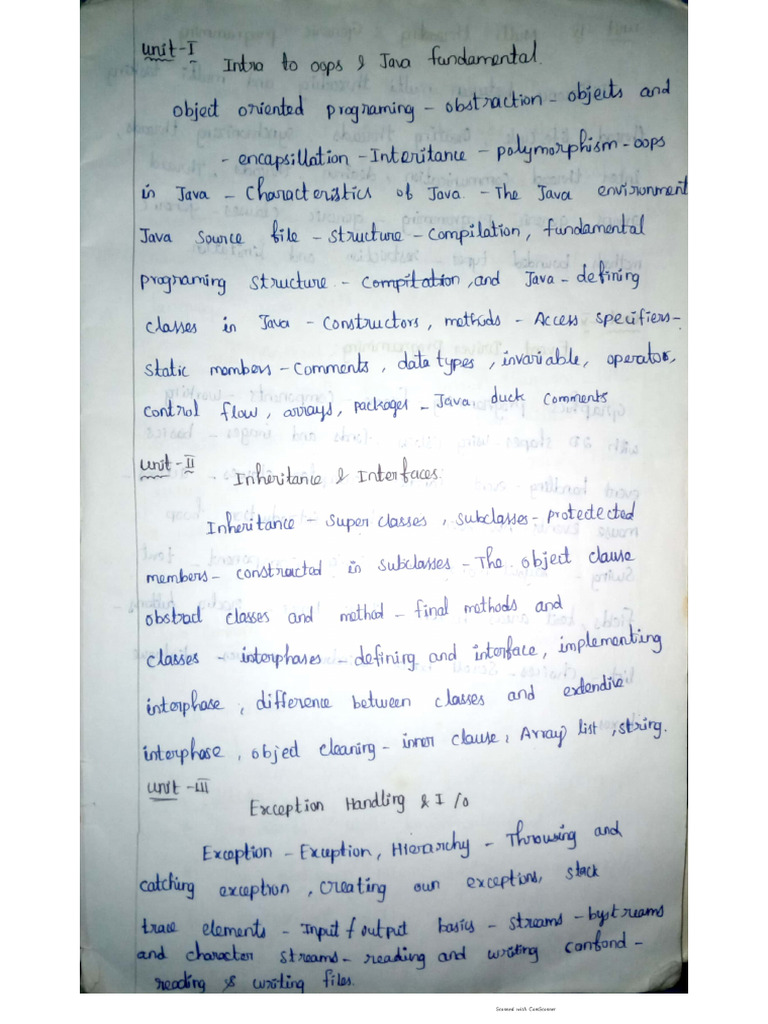 Unit-I
Intro to oops & Java fundamental.
object oriented programing - obstraction - objects and
- encapsillation - Interitance - polymorphism - oops
in Java - Characteristics of Java. - The Java environment
Java Source file - structure - compilation, fundamental
programing structure - compitation, and Java - defining
classes in Java - Constructors, methods - Access specifiers -
static members - Comments, data types, invariable, operator,
control flow, arrays, packages - Java duck Comments
Unit-II
Inheritance & Interfaces.
Inheritance - Super classes, subclasses - protedected
members - constructed in subclasses - The object clause
obstract classes and method - final methods and
classes - interphases - defining and interface, implementing
interphase, difference between classes and extendive
interphase, object cleaning - inner clause, Array list, string.
Unit-III
Exception Handling & I/O
Exception - Exuption, Hierarchy - Throusing and
catching exception, creating own exceptions, stack
trace elements - Input/output basics - streams - bystreams
and character streams - reading and writing confond -
reading & writing files.
Scanned with CamScanner